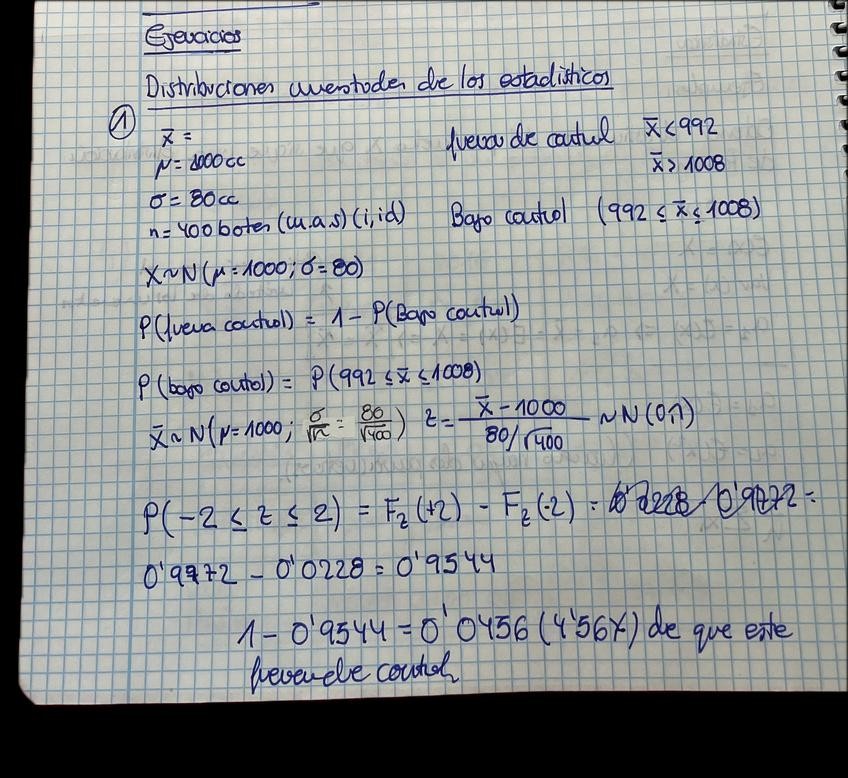 Ejercicios
Distribuciones muestrales de los estadísticos
1
x̄ =
μ = 1000cc
σ = 80cc
n = 400 botes (m.a.s) (i,id)
fuera de control x̄ < 992
x̄ > 1008
Bajo control (992 ≤ x̄ ≤ 1008)
X ~ N(μ = 1000; σ = 80)
P(fuera control) = 1 - P(Bajo control)
P(bajo control) = P(992 ≤ x̄ ≤ 1008)
x̄ ~ N(μ = 1000; σ/√n = 80/√400) z = (x̄ - 1000)/(80/√400) ~ N(0,1)
P(-2 ≤ z ≤ 2) = Fz(+2) - Fz(-2) = 0'0228 - 0'9772 =
0'9972 - 0'0228 = 0'9544
1 - 0'9544 = 0'0456 (4'56%) de que este
fuera de control